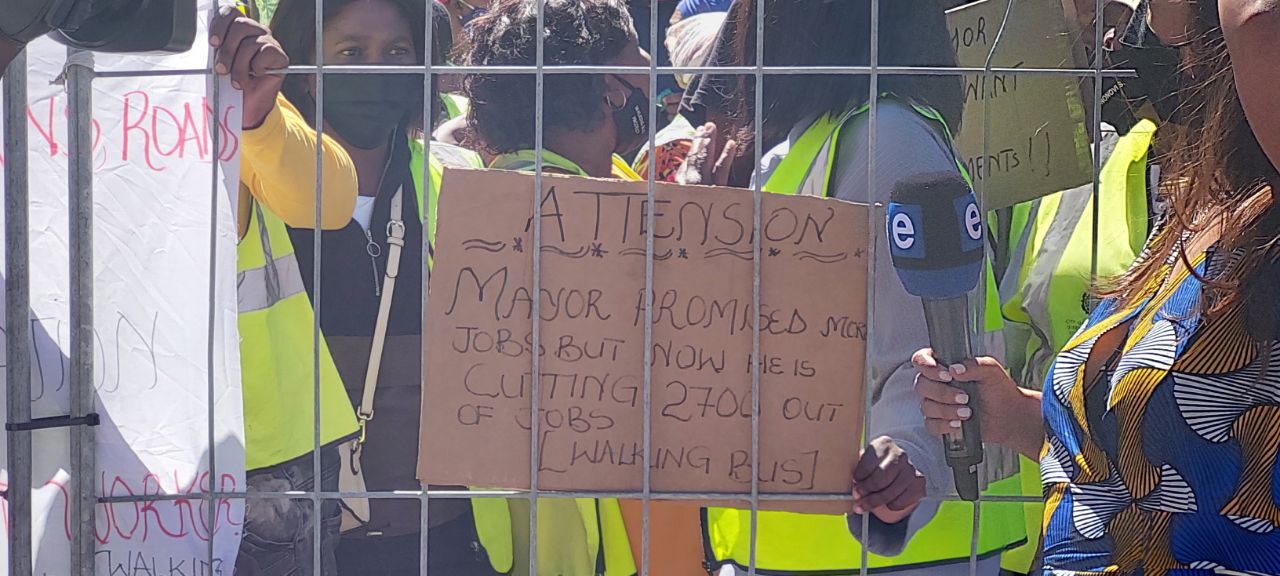 ROADS
ATTENSION
MAYOR PROMISED MOR
JOBS BUT NOW HE IS
CUTTING 2700 OUT
OF JOBS
[WALKING BUS]
MENTS!]
e
e
WORKER
[WALKIN